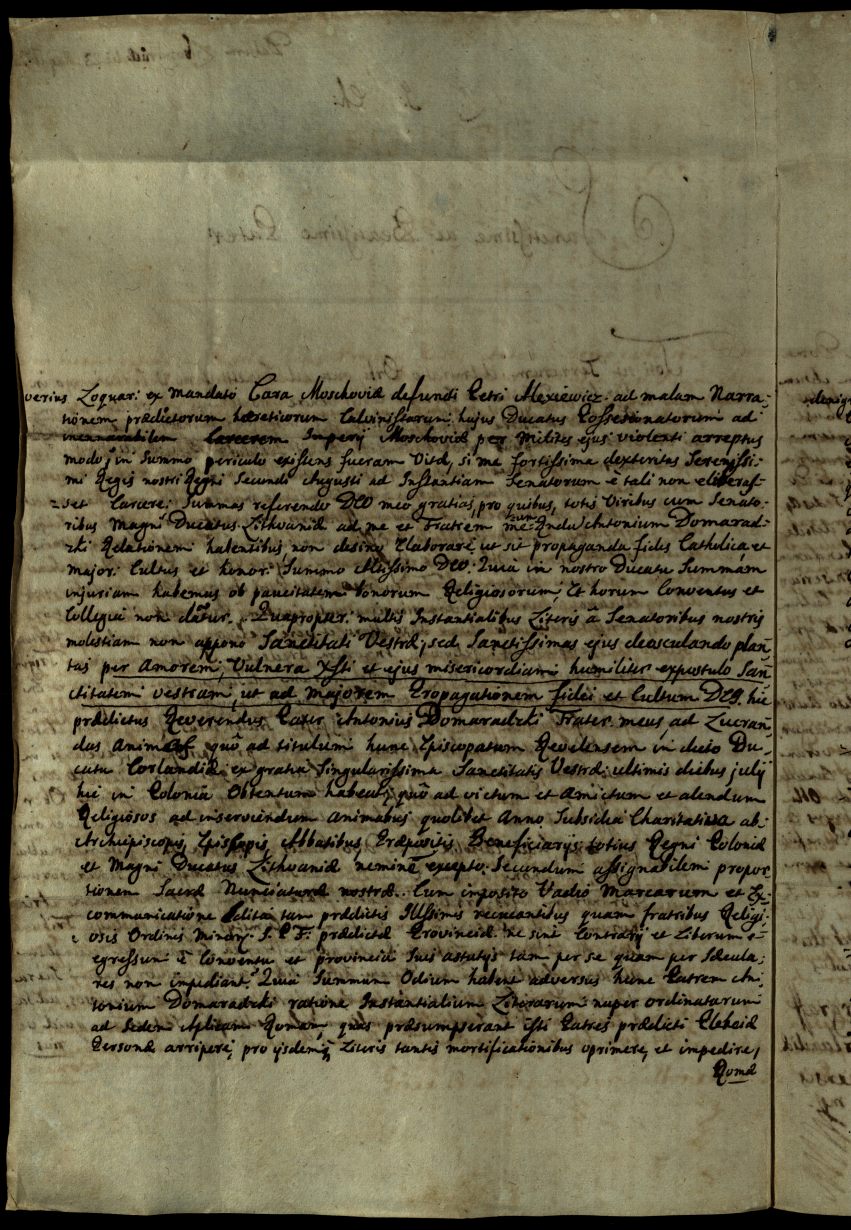 verius Loquar: ex mandato Czara Moschoviæ defuncti Petri Alexiewicz ad malam Narra-
tionem prædictorum hæreticorum Calvinistarum hujus Ducatus Possessionatorum ad
inenarrabilem Carcerem Imperij Moschoviæ per Milites ejus violenti arreptus
modo, in summo periculo existens fueram Vitæ, si me fortissima dexteritas Serenissi-
mi Regis nostri Regni Secundi Augusti ad Instantiam Senatorum e tali non eliberas-
set Carcere; Summas referendo DEO meo gratias, pro quibus, totis Viribus cum Senato-
ribus Magni Ducatus Lithvaniæ ad me et Fratrem meum Antonium Domarad-
zki Relationem habentibus non desino Elaborare, ut sit propaganda fides Catholica, et
major: Cultus et honor: Summo Altissimo DEO. Quia in nostro Ducatu Summam
injuriam habemus ob paucitatem bonorum Religiosorum, Et horum Conventus et
Collegia non dantur. Quapropter: multis Instantialibus Literis â Senatoribus nostris
molestiam non appono Sanctitati Vestræ, sed Sanctissimas ejus deosculando plan-
tas per amorem, Vulnera Xsti et ejus misericordiam humiliter expostulo San-
ctitatem vestram, ut ad majorem Propagationem fidei et Cultum DEO. hic
prædictus Reverendus Pater Antonius Domaradzki Frater meus, ad Lucran-
das animas quô ad titulum hunc Episcopatum Revelensem in dicto Du-
catu Corlandiæ ex gratia Singularissima Sanctitatis Vestræ ultimis diebus julij
hic in Polonia Obtentum habeat, quô ad victum et amictum et alendum
Religiosos ad inserviendum animabus quolibet Anno Subsidia Charitativa ab
Archiepiscopis, Episcopis, Abbatibus, Præpositis, Beneficiarijs totius Regni Poloniæ
et Magni Ducatus Lithvaniæ neminê excepto, Secundum assignabilem propor-
tionem Sacræ Nunciaturæ nostræ. Cum imposito Vadio Marcarum et Ex-
communicatione tam prædictis Illssimis quam fratribus Religi-
osis Ordinis Minorum S. P. F. prædictæ Provinciæ ne sint Contrarij et Liberum e-
egressum ê Conventu et provincia suis astutijs tam per se quam per Sæcula-
res non impediant. Quia Summum Odium habent adversus hunc Patrem An-
tonium Domaradzki ratione Instantialium Literarum nuper ordinatarum
ad Sedem Aplicam Romam, quas præsumpserant isti Patres prædicti Plebeiæ
Personæ arripere, pro ijsdemq Literis tantis mortificationibus oprimere, et impedire,
Romæ